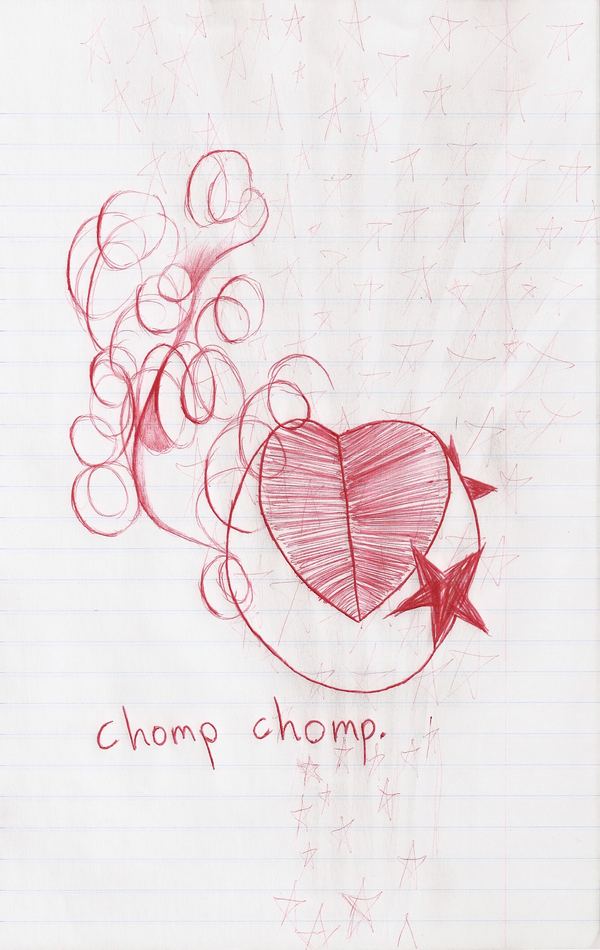 chomp chomp.